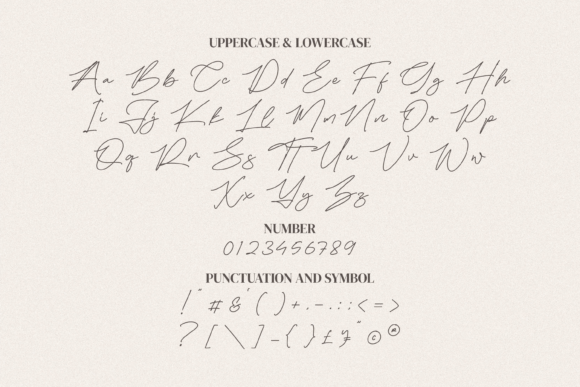 UPPERCASE & LOWERCASE
Aa Bb Cc Dd Ee Ff Gg Hh
Ii Jj Kk Ll Mm Nn Oo Pp
Qq Rr Ss Tt Uu Vv Ww
Xx Yy Zz
NUMBER
0123456789
PUNCTUATION AND SYMBOL
! " # & ' ( ) + . - . : : < = >
? [ \ ] - { } £ ¥ " © ®